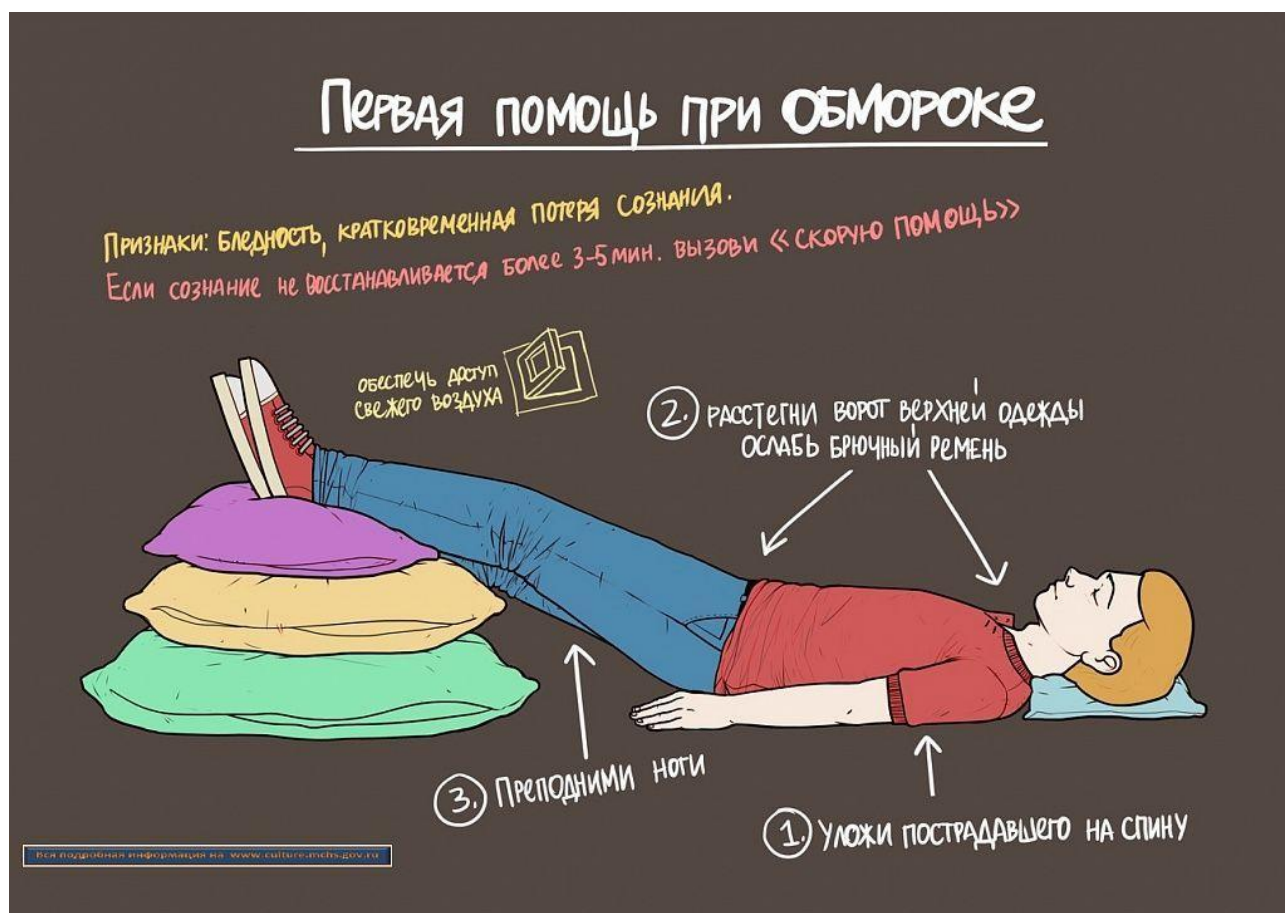 Первая помощь при ОБМОРОКЕ
Признаки: бледность, кратковременная потеря сознания.
Если сознание не восстанавливается более 3-5 мин. вызови «скорую помощь»
обеспечь доступ
свежего воздуха
2. Расстегни ворот верхней одежды
ослабь брючный ремень
3. Преподними ноги
1. Уложи пострадавшего на спину
Вся подробная информация на www.culture.mchs.gov.ru